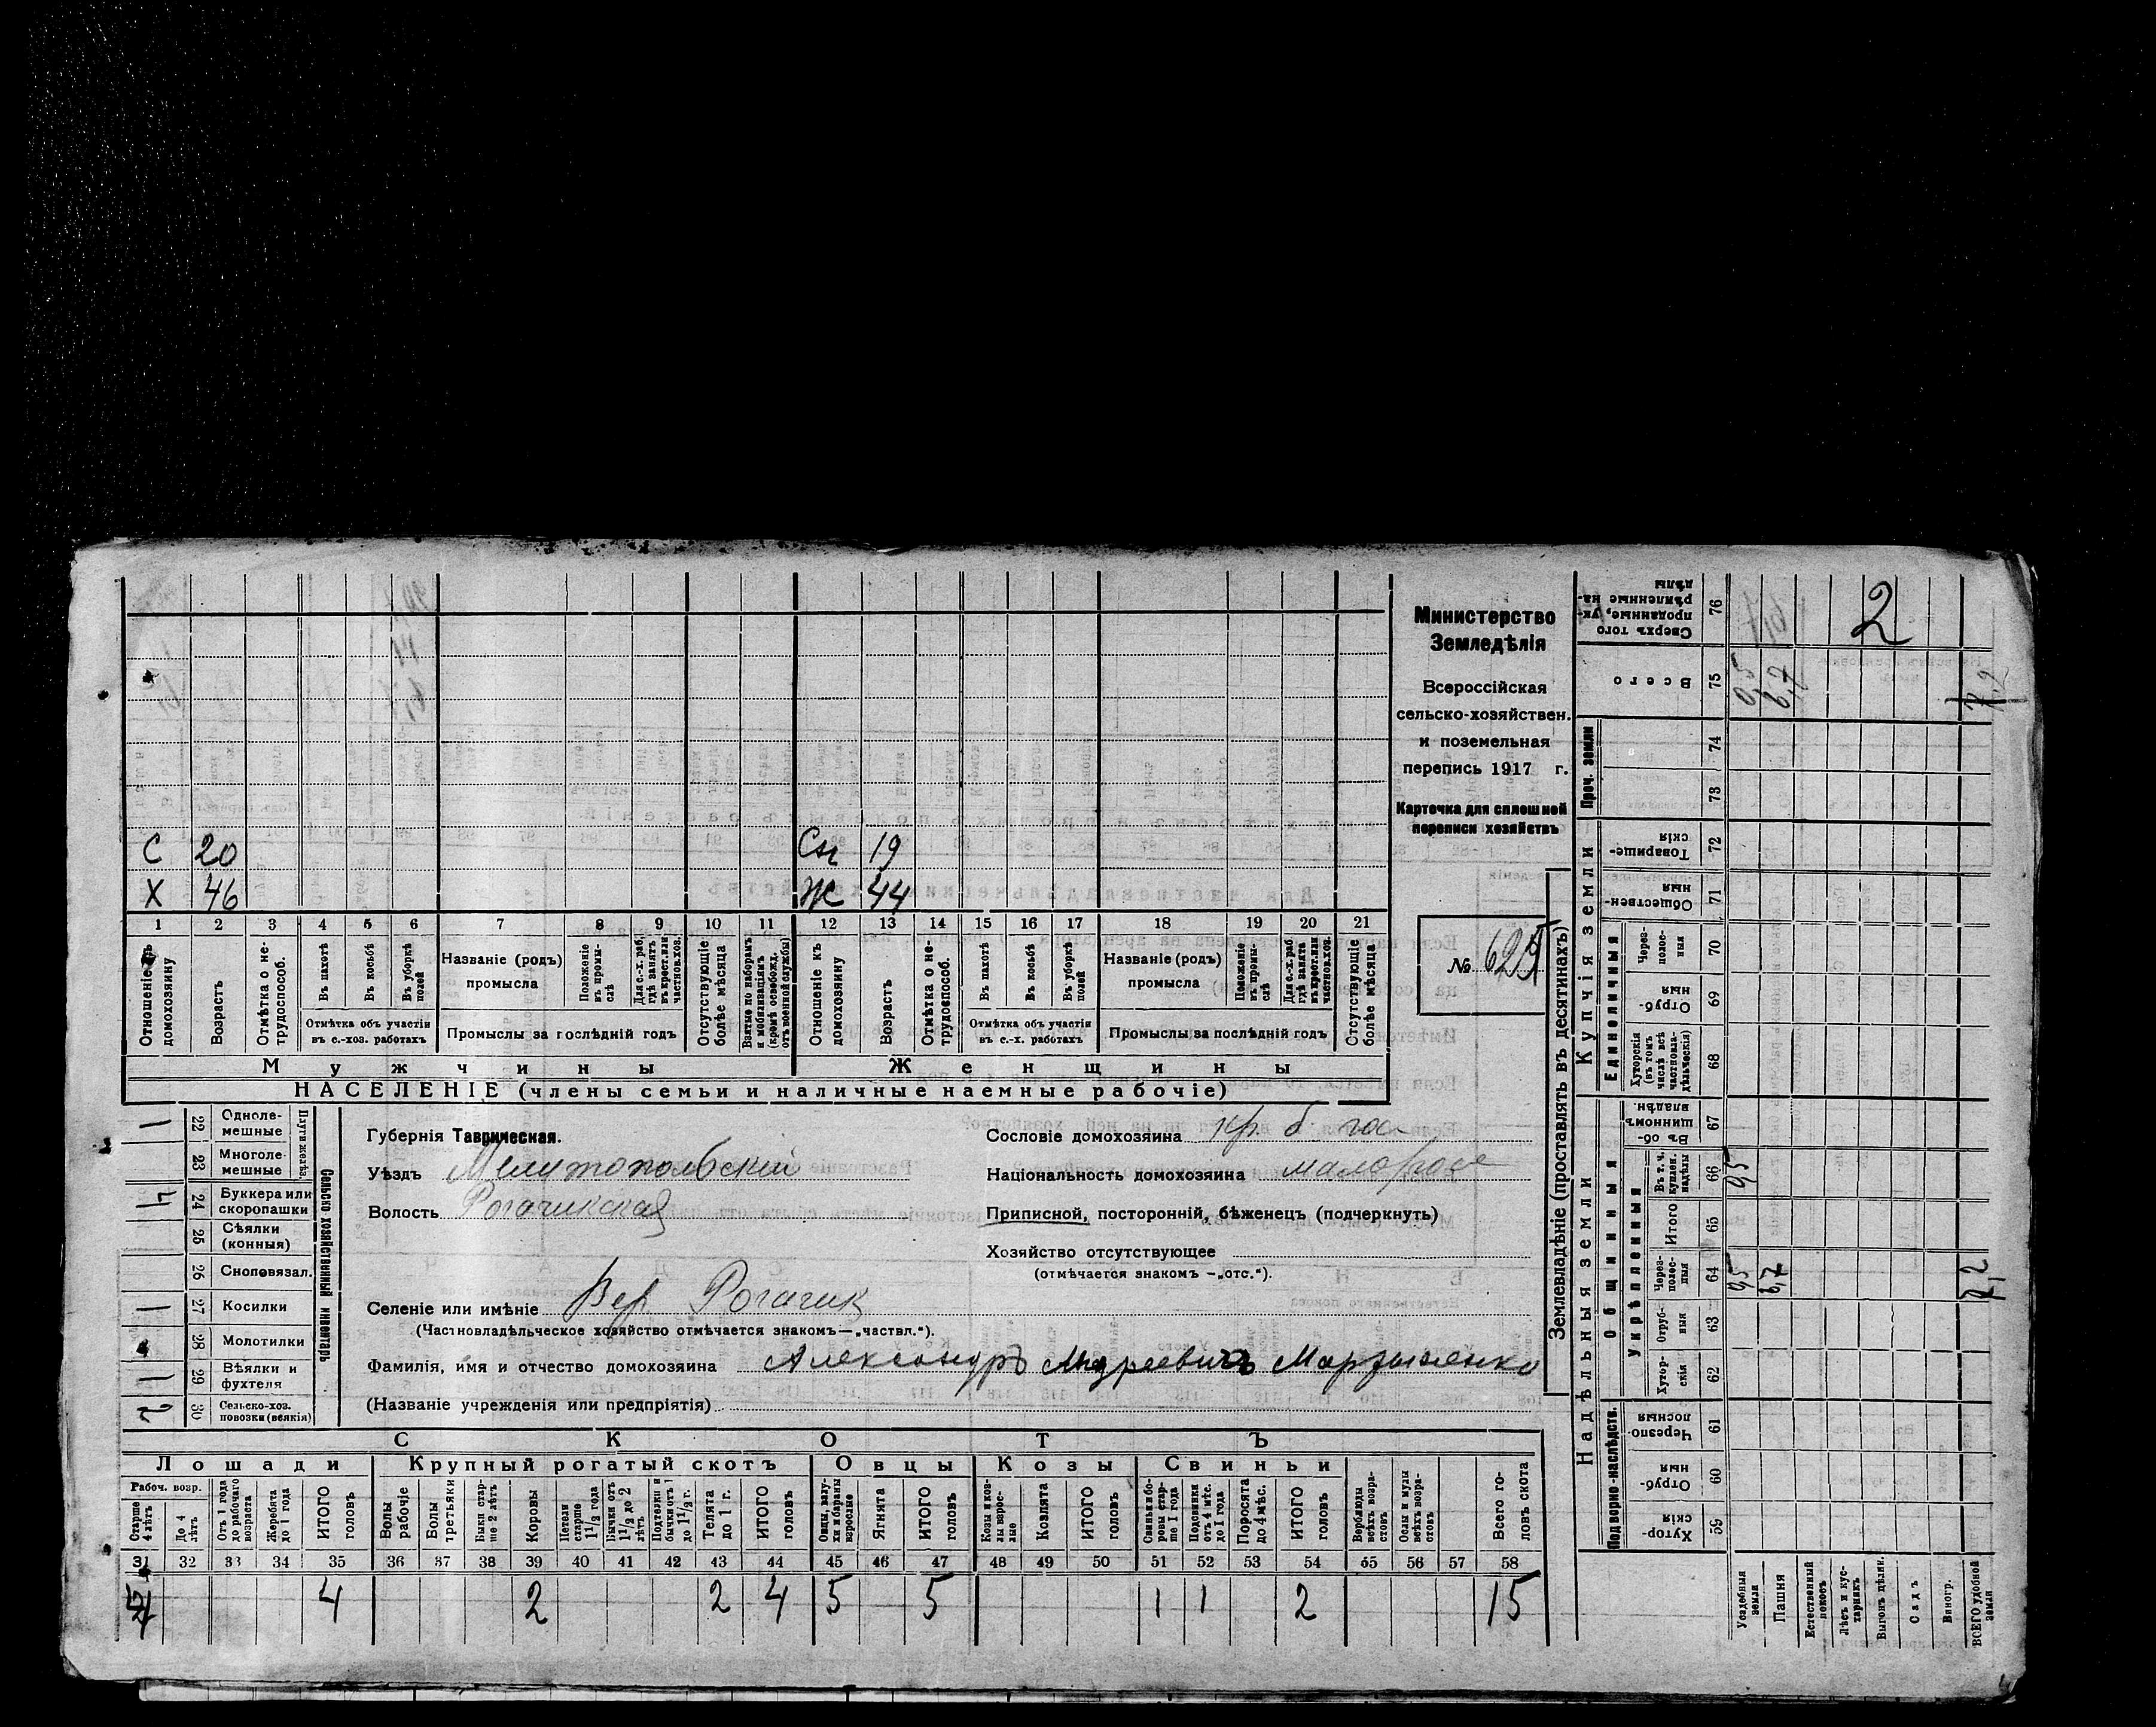 С 20 Сн 19
Х 46 Ж 44
1 2 3 4 5 6 7 8 9 10 11 12 13 14 15 16 17 18 19 20 21
Отношеніе къ домохозяину
Возрастъ
Отмѣтка о не-трудоспособ.
Въ пахотѣ
Въ косьбѣ
Въ уборкѣ полей
Отмѣтка объ участіи
въ с.-хоз. работахъ
Названіе (родъ)
промысла
Положеніе въ промыслѣ
Для с.-х. раб. гдѣ занятъ въ крест. или частнов. хоз.
Промыслы за послѣдній годъ
Отсутствующіе болѣе мѣсяца
Взятые по наборамъ и мобилизаціямъ (кромѣ освобожд. отъ военной службы)
Отношеніе къ домохозяину
Возрастъ
Отмѣтка о не-трудоспособ.
Въ пахотѣ
Въ косьбѣ
Въ уборкѣ полей
Отмѣтка объ участіи
въ с.-х. работахъ
Названіе (родъ)
промысла
Положеніе въ промыслѣ
Для с.-х. раб гдѣ занята въ крест. или частнов. хоз.
Промыслы за послѣдній годъ
Отсутствующіе болѣе мѣсяца
Мужчины Женщины
НАСЕЛЕНІЕ (члены семьи и наличные наемные рабочіе)
Министерство
Земледѣлія
Всероссійская
сельско-хозяйствен.
и поземельная
перепись 1917 г.
Карточка для сплошной
переписи хозяйствъ
№
Сельско-хозяйственный инвентарь
Плуги желѣз.
22 Одноле-мешные 1
23 Многоле-мешные
24 Буккера или скоропашки
25 Сѣялки (конныя)
26 Сноповязал.
27 Косилки 1
28 Молотилки
29 Вѣялки и фухтеля 1
30 Сельско-хоз. повозки (всякія) 2
Губернія Таврическая.
Уѣздъ Мелитопольскій
Волость Рогачикская
Селеніе или имѣніе Вер Рогачик
(Частновладѣльческое хозяйство отмѣчается знакомъ—„частвл.“).
Фамилія, имя и отчество домохозяина Александръ Андреевичъ
(Названіе учрежденія или предпріятія)
Сословіе домохозяина кр. б гос
Національность домохозяина малорос
Приписной, посторонній, бѣженецъ (подчеркнуть)
Хозяйство отсутствующее
(отмѣчается знакомъ —„отс.“).
СКОТЪ
Лошади Крупный рогатый скотъ Овцы Козы Свиньи
Рабоч. возр.
Старше 4 лѣтъ
До 4 лѣтъ
Отъ 1 года до рабочаго возраста
Жеребята до 1 года
ИТОГО головъ
Волы рабочіе
Волы третьяки
Быки стар-ше 2 лѣтъ
Коровы
Нетели старше 1½ года
Бычки отъ 1½ до 2 лѣтъ
Подтелки и бычки отъ 1 до 1½ г.
Телята до 1 г.
ИТОГО головъ
Овцы, валу-хи и бараны взрослые
Ягнята
ИТОГО головъ
Козы и коз-лы взрос-лые
Козлята
ИТОГО головъ
Свиньи бо-ровы стар-ше 1 года
Подсвинки отъ 4 мѣс. до 1 года
Поросята до 4 мѣс.
ИТОГО головъ
Верблюды всѣхъ возра-стовъ
Ослы и мулы всѣхъ возра-стовъ
Всего го-ловъ скота
31 32 33 34 35 36 37 38 39 40 41 42 43 44 45 46 47 48 49 50 51 52 53 54 55 56 57 58
4 2 2 4 5 5 1 1 2 15
Землевладѣніе (проставлять въ десятинахъ)
Надѣльныя земли Купчія земли Проч. земли
Подворно-наслѣдств. Общинныя Единоличныя
Укрѣпленныя
76 Сверхъ того проданные, ук-рѣпленные на-дѣлы 2
75 Всего 0,5
74
73
72 Товарище-скія
71 Обществен-ныя
70 Через-полос-ныя
69 Отруб-ныя
68 Хуторскія (въ томъ числѣ всѣ частновла-дѣльческія)
67 Въ об-щинномъ владѣн.
66 Въ т. ч. куплен. надѣлы
65 Итого
64 Через-полос-ныя
63 Отруб-ныя
62 Хутор-скія
61 Черезпо-лосныя
60 Отруб-ныя
59 Хутор-скія
Усадебныя земли
Пашня
Естественный покосъ
Лѣсъ и кус-тарникъ
Выгонъ цѣлин.
Садъ
Виногр.
ВСЕГО удобной земли